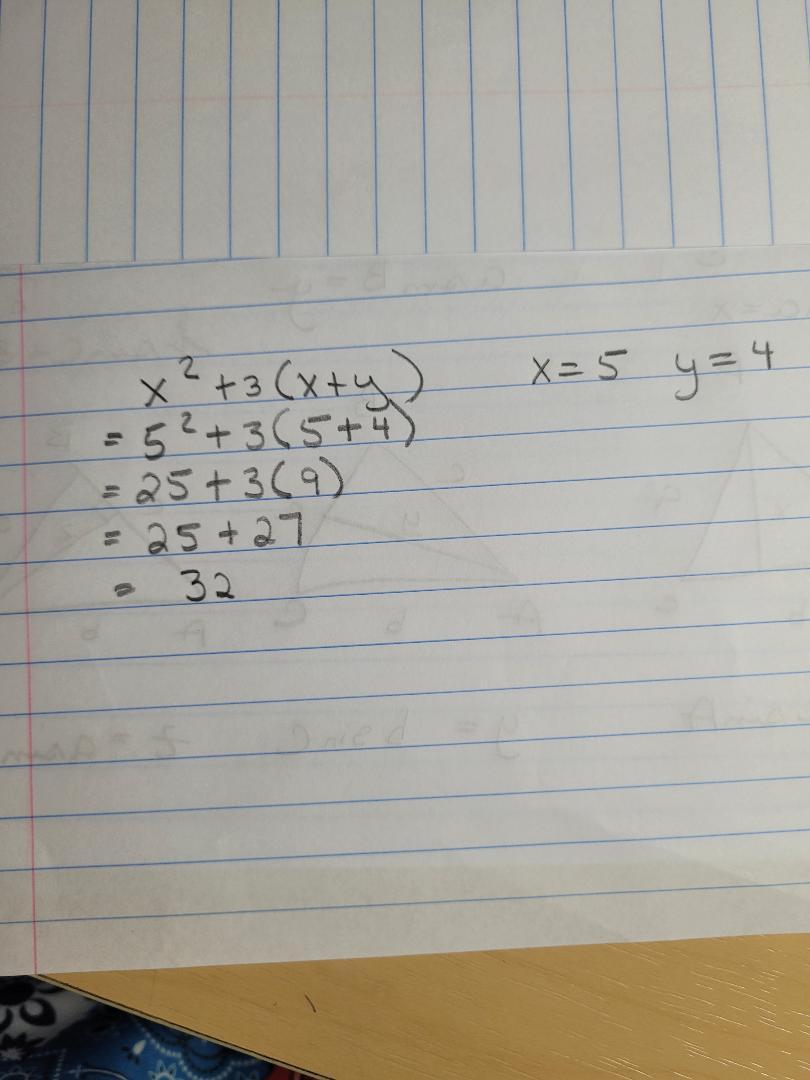 x² + 3(x+y) x = 5 y = 4
= 5² + 3(5+4)
= 25 + 3(9)
= 25 + 27
= 32